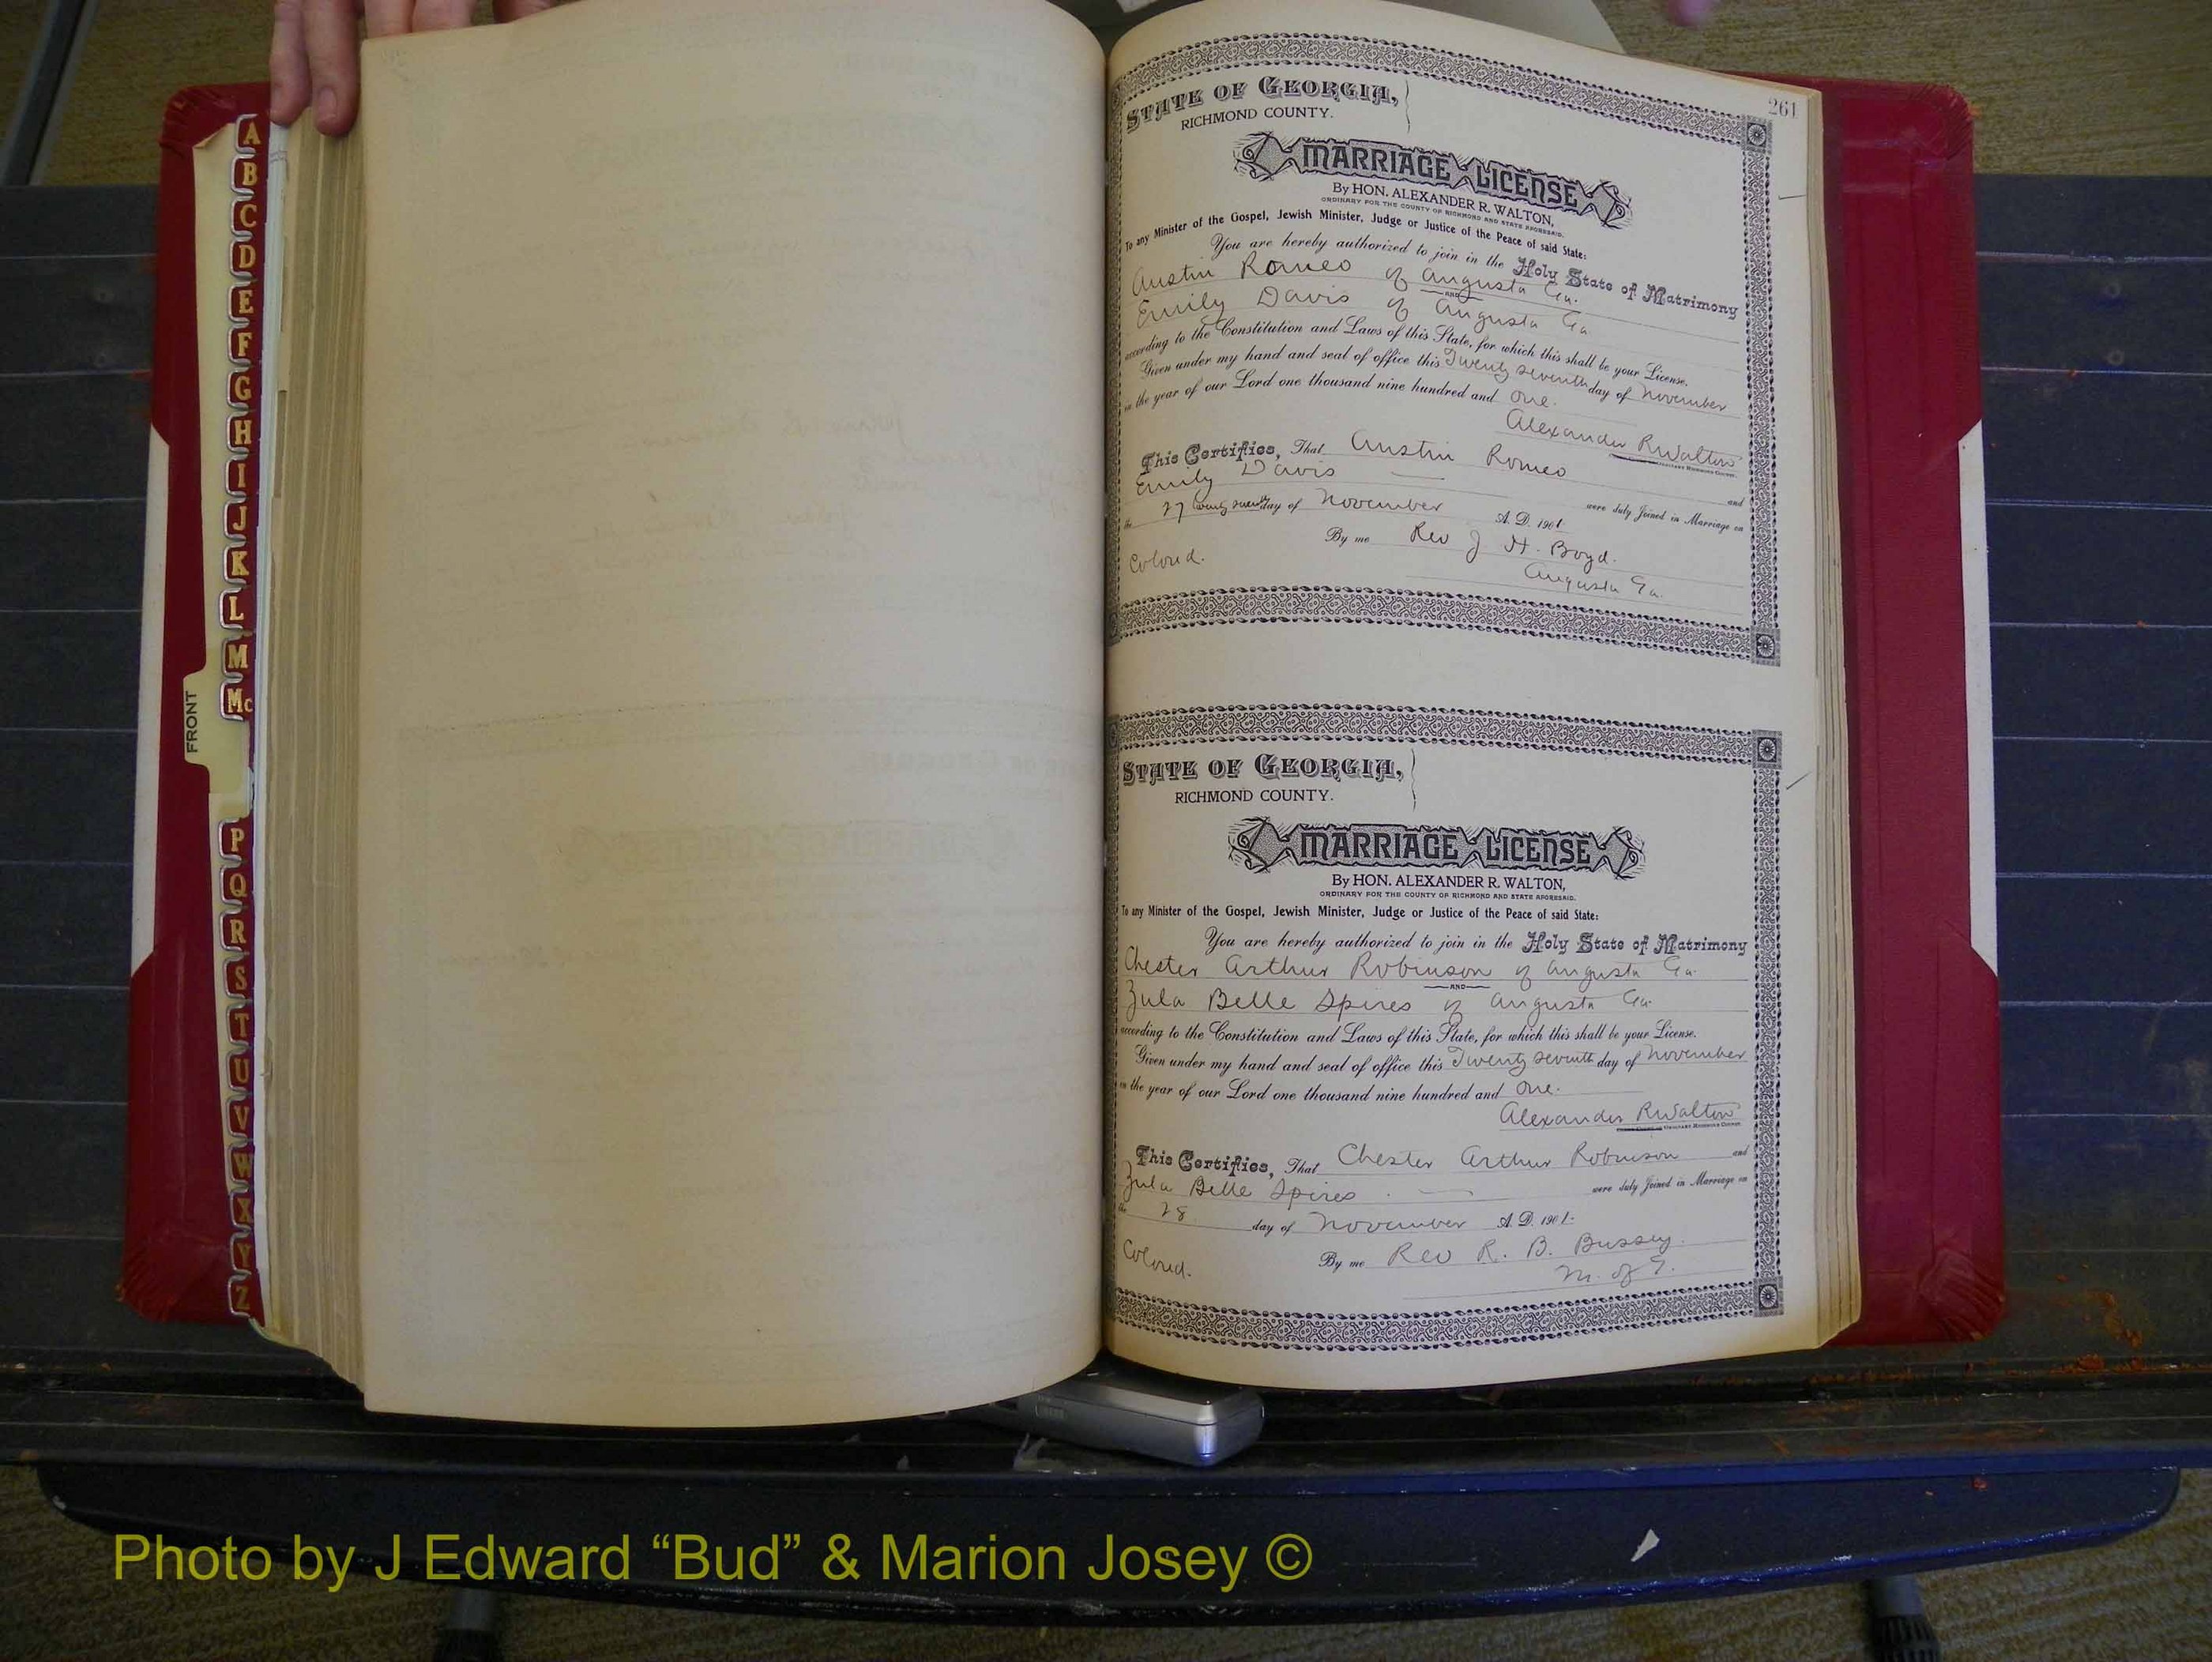 A
B
C
D
E
F
G
H
I
J
K
L
M
Mc
FRONT
P
Q
R
S
T
U
V
W
X
Y
Z
261
STATE OF GEORGIA,
RICHMOND COUNTY.
MARRIAGE LICENSE
By HON. ALEXANDER R. WALTON,
ORDINARY FOR THE COUNTY OF RICHMOND AND STATE AFORESAID.
To any Minister of the Gospel, Jewish Minister, Judge or Justice of the Peace of said State:
You are hereby authorized to join in the Holy State of Matrimony
Austin Romeo of Augusta Ga.
AND
Emily Davis of Augusta Ga
according to the Constitution and Laws of this State, for which this shall be your License.
Given under my hand and seal of office this Twenty seventh day of November
in the year of our Lord one thousand nine hundred and one.
Alexander R Walton
ORDINARY RICHMOND COUNTY.
This Certifies, That Austin Romeo and
Emily Davis were duly Joined in Marriage on
the 27 twenty seventh day of November A. D. 1901
By me Rev J. H. Boyd.
Colored. Augusta Ga.
STATE OF GEORGIA,
RICHMOND COUNTY.
MARRIAGE LICENSE
By HON. ALEXANDER R. WALTON,
ORDINARY FOR THE COUNTY OF RICHMOND AND STATE AFORESAID.
To any Minister of the Gospel, Jewish Minister, Judge or Justice of the Peace of said State:
You are hereby authorized to join in the Holy State of Matrimony
Chester Arthur Robinson of Augusta Ga.
AND
Zula Belle Spires of Augusta Ga.
according to the Constitution and Laws of this State, for which this shall be your License.
Given under my hand and seal of office this Twenty seventh day of November
in the year of our Lord one thousand nine hundred and one.
Alexander R Walton
ORDINARY RICHMOND COUNTY.
This Certifies, That Chester Arthur Robinson and
Zula Belle Spires were duly Joined in Marriage on
the 28 day of November A. D. 1901.
Colored. By me Rev R. B. Bussey.
M. of G.
Photo by J Edward “Bud” & Marion Josey ©